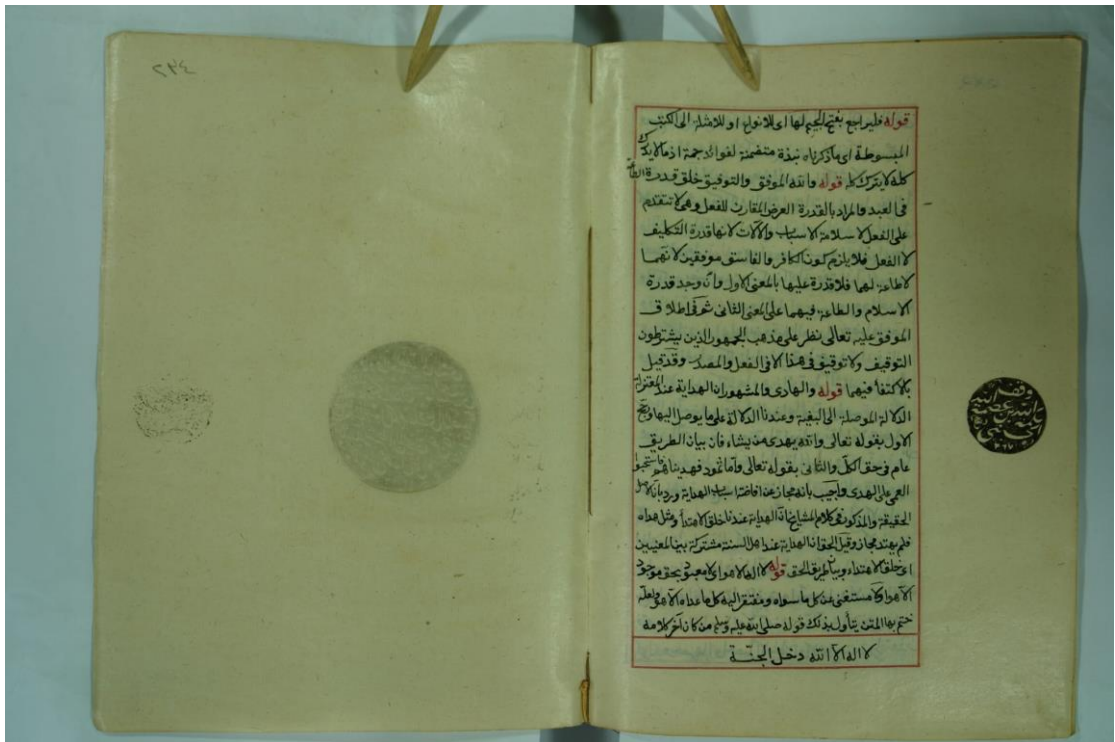 قوله فليراجع بفتح الجيم لها اى للانواع او للامثلة الى الكتب
المبسوطة اى ما ذكرناه نبذة متضمنة لفوائد جمة اذ ما لا يدرك
كله لا يترك كله قوله والله الموفق والتوفيق خلق قدرة الطاعة
فى العبد والمراد بالقدرة العرض المقارن للفعل وهى لا تتقدم
على الفعل لا سلامة الاسباب والآلات لانها قدرة التكليف
لا الفعل فلا يلزم كون الكافر والفاسق موفقين لانهما
لا طاعة لهما فلا قدرة عليها بالمعنى الاول وان وجد قدرة
الاسلام والطاعة فيهما على المعنى الثانى ثم فى اطلاق
الموفق عليه تعالى نظر على مذهب الجمهور الذين يشترطون
التوقيف ولا توقيف فى هذا الا فى الفعل والمصدر وقد قيل
بالاكتفا فيهما قوله والهادى والمشهور ان الهداية عند المعتزلة
الدلالة الموصلة الى البغية وعندنا الدلالة على ما يوصل اليها
الاول بقوله تعالى والله يهدى من يشاء فان بيان الطريق
عام فى حق الكل والثانى بقوله تعالى واما ثمود فهديناهم فاستحبوا
العمى على الهدى واجيب بانه مجاز عن افاضة اسباب الهداية ورد بان الاصل
الحقيقة والمذكور فى كلام المشايخ ان الهداية عندنا خلق الاهتدا ومثل هداه
فلم يهتد مجاز وقيل الحق ان الهداية عند اهل السنة مشتركة بين المعنيين
اى خلق الاهتداء وبيان طريق الحق قوله لا اله الا هو اى لا معبود بحق موجود
الا هو ولا مستغنى عن كل ما سواه ومفتقر اليه كل ما عداه الا هو ولعله
ختم بها المتن يتأول بذلك قوله صلى الله عليه وسلم من كان آخر كلامه
لا اله الا الله دخل الجنة
٢٣٤